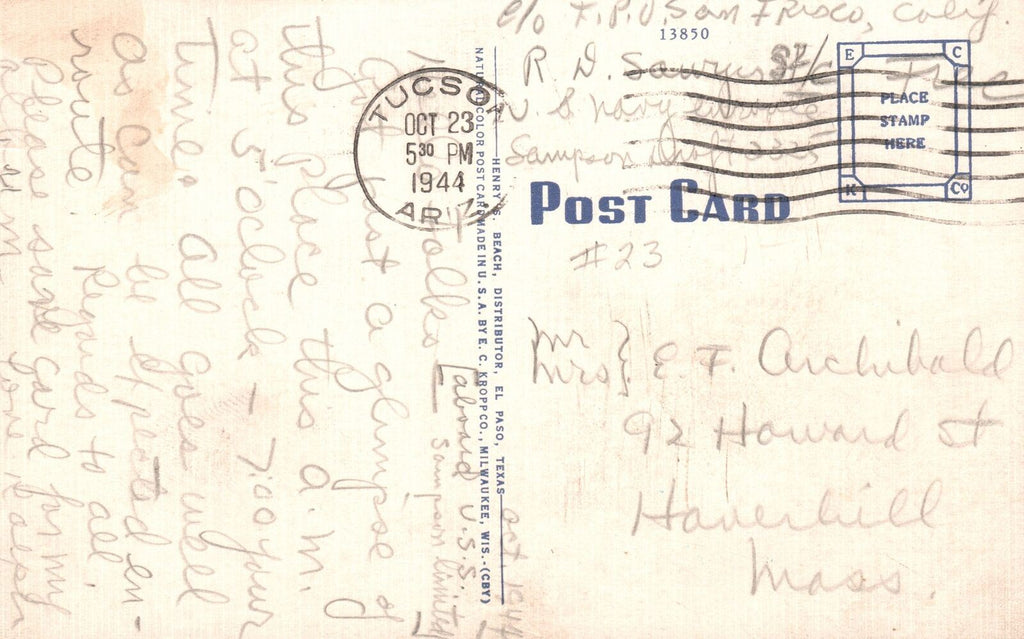 c/o F.P.O. San Frisco, Calif.
13850
R. D. Sawyer S 2/c Free
U. S. Navy
Sampson Draft
TUCSON
OCT 23
5 30 PM
1944
ARIZ
E C
PLACE
STAMP
HERE
K CO
POST CARD
#23
Mr
Mrs } E. F. Archibald
92 Howard St
Haverhill
Mass.
HENRY S. BEACH, DISTRIBUTOR, EL PASO, TEXAS
NATURAL COLOR POST CARD MADE IN U. S. A. BY E. C. KROPP CO., MILWAUKEE, WIS.-(CBY)
Oct. 1944
[aboard U.S.S.
Sampson limited]
Folks —
Got just a glimpse of
this place this a.m.
at 5 o'clock – 7:00 your
time. All goes well
as can be expected en-
route. Regards to all –
Please save card for my